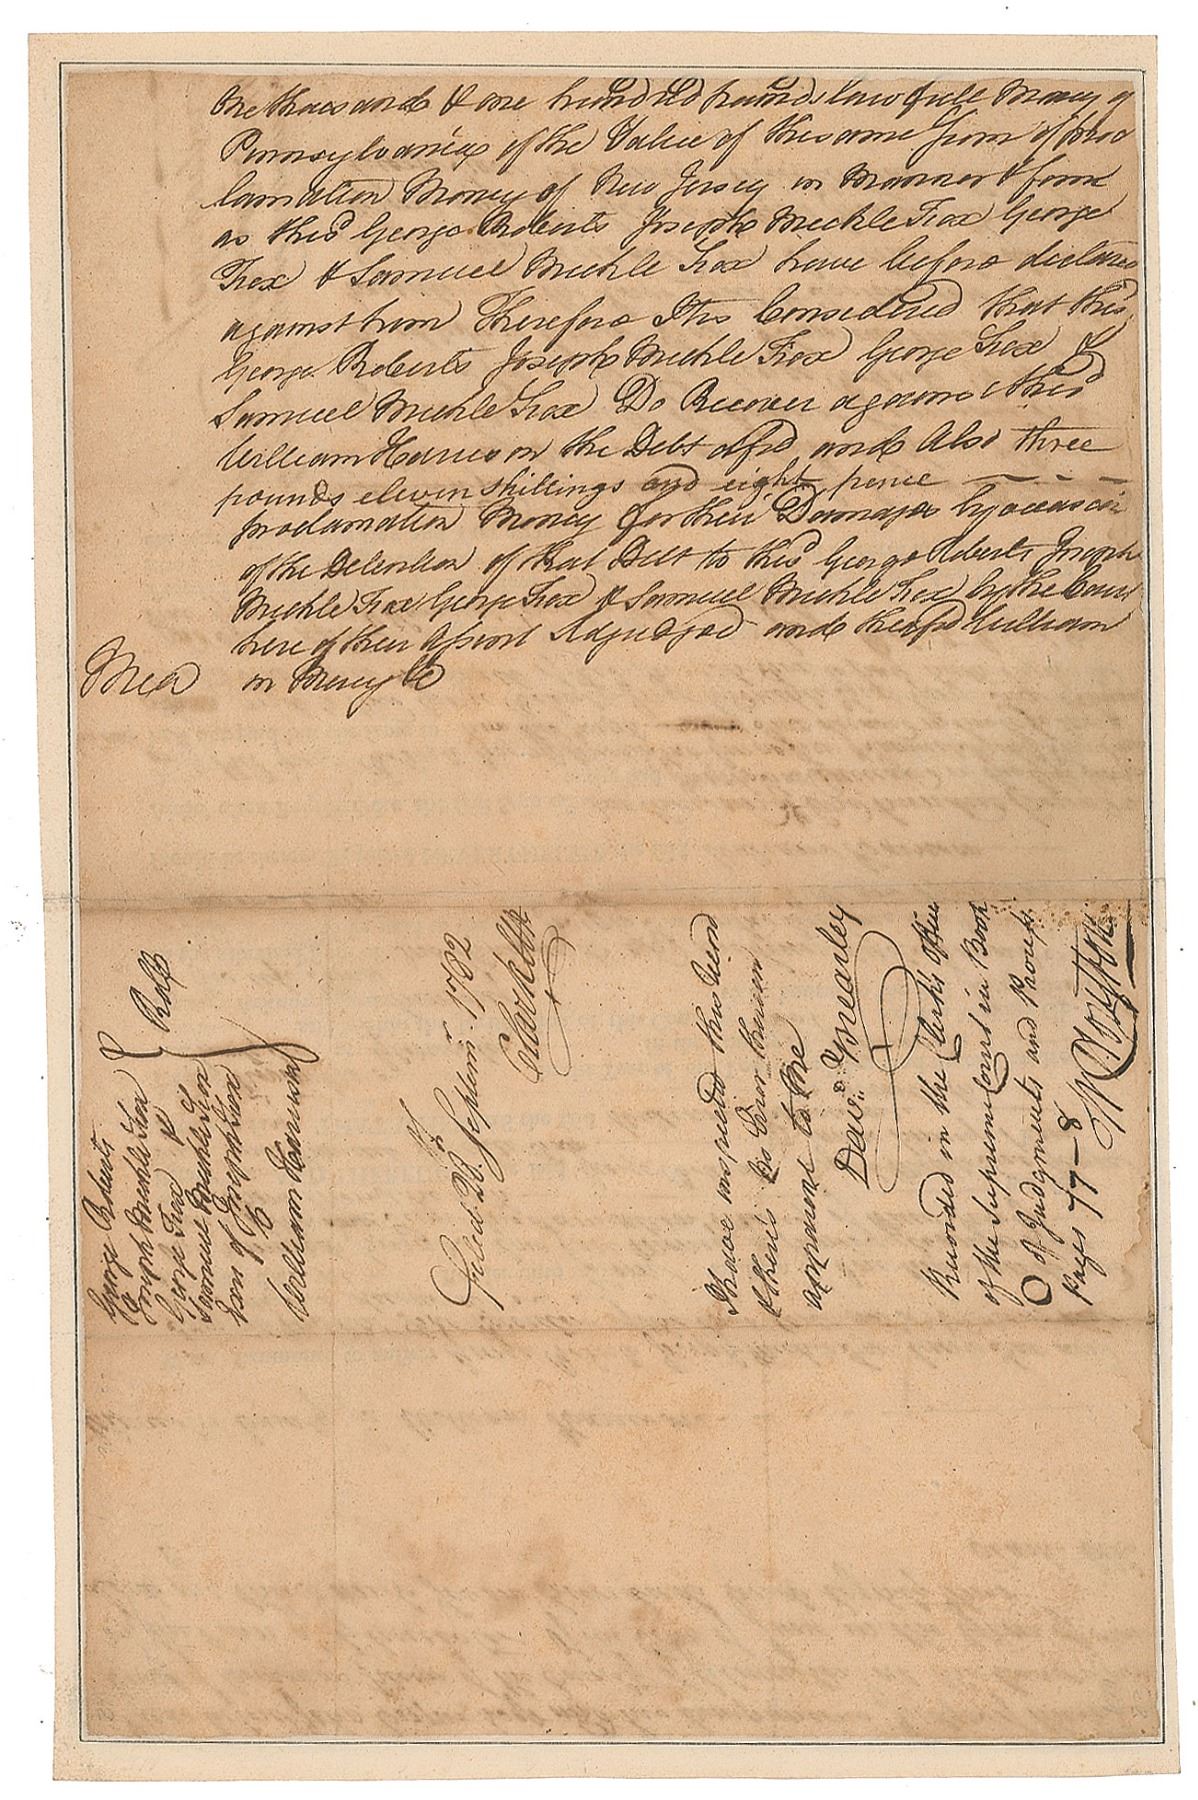 One thousand & one hundred pounds lawfull Money of
Pennsylvania of the Value of the same Sum of Proc
lamation Money of New Jersey in Manner & form
as the sd George Roberts Joseph Mickle Fox George
Fox & Samuel Mickle Fox have before declared
against him Therefore It is Considered that the sd
George Roberts Joseph Mickle Fox George Fox &
Samuel Mickle Fox Do Recover against the sd
William Harrison the Debt afsd and Also three
pounds eleven shillings and eight pence
proclamation Money for their Damages by occasion
of the Detention of that Debt to the sd George Roberts Joseph
Mickle Fox George Fox & Samuel Mickle Fox by the Court
here of their Assent Adjudged and the afsd William
Mea in Mercy &c
George Roberts
Joseph Mickle Fox
George Fox &
Samuel Mickle Fox
Exrs of Joseph Fox
Rolf
William Harrison
Filed 28. Septemr. 1782
Clark
I have inspected this Record
& there is no Error therein
apparent to Me
Davd: Brearley
Recorded in the Clerk's Office
of the Supreme Court in Book
O of Judgments and
Pages 77-8
W. C. Houston